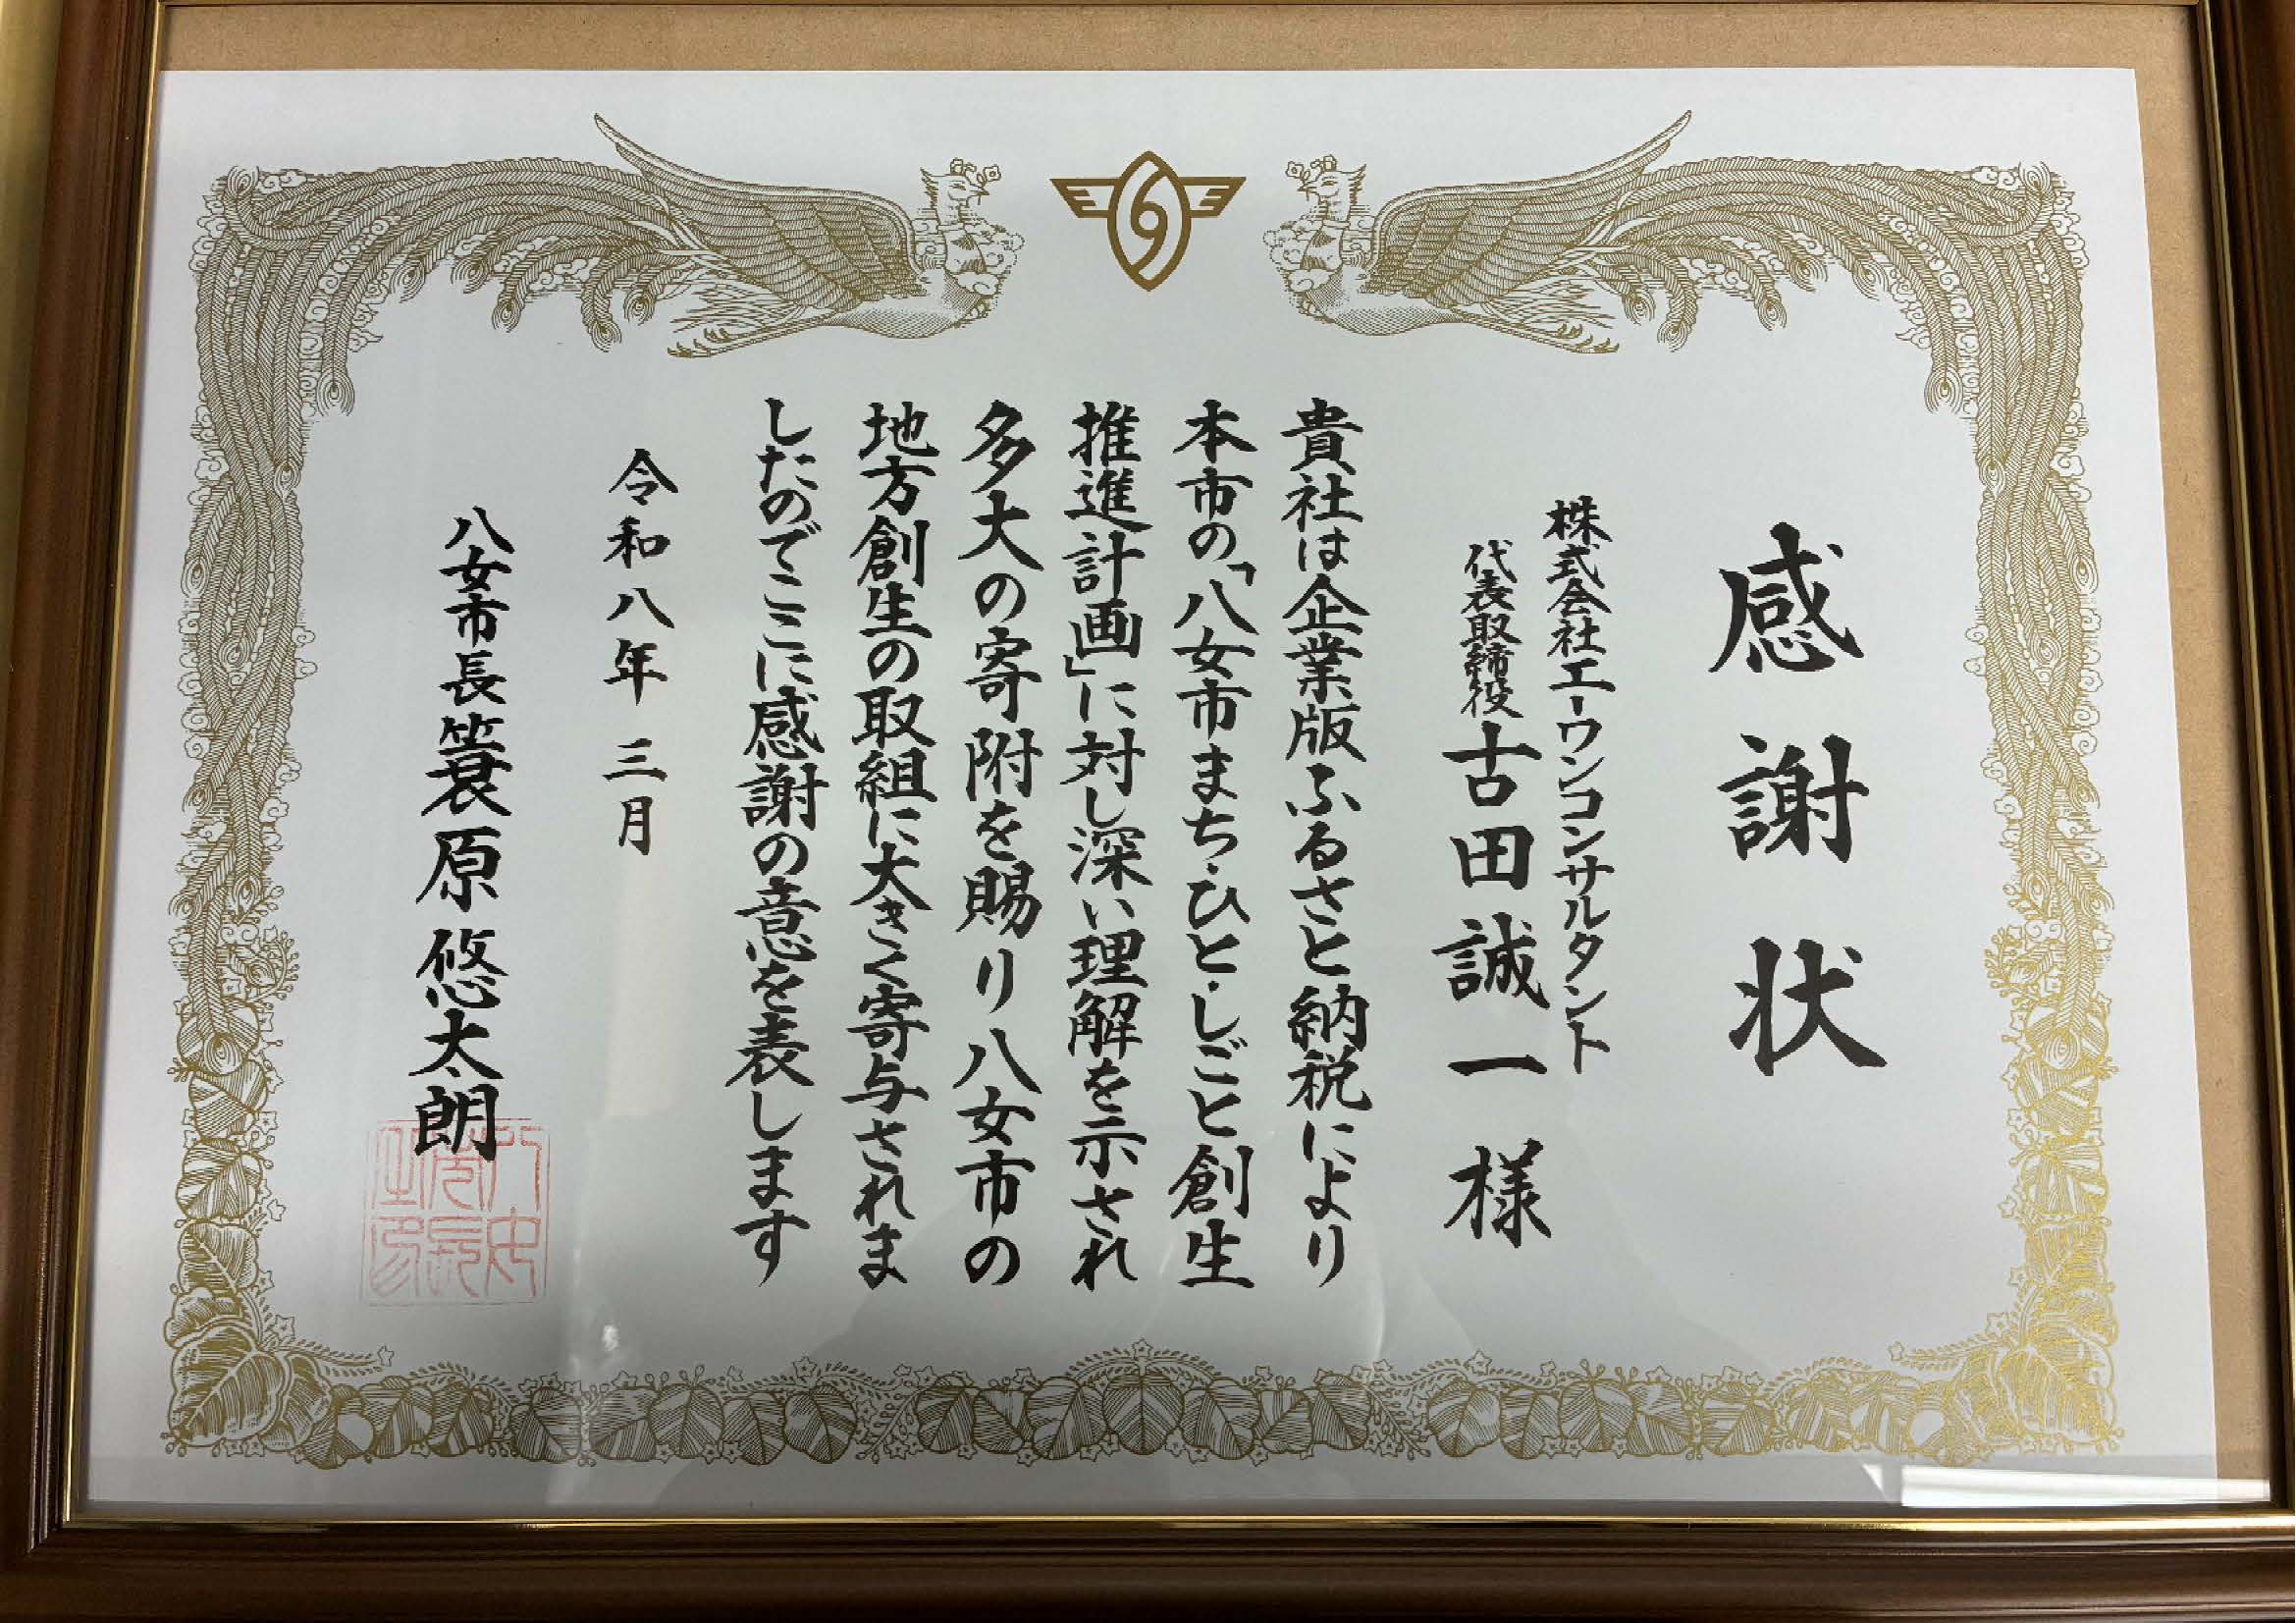 感謝状
株式会社エーワンコンサルタント
代表取締役 古田誠一 様
貴社は企業版ふるさと納税により
本市の「八女市まち・ひと・しごと創生
推進計画」に対し深い理解を示され
多大の寄附を賜り八女市の
地方創生の取組に大きく寄与されま
したのでここに感謝の意を表します
令和八年 三月
八女市長 簑原悠太朗